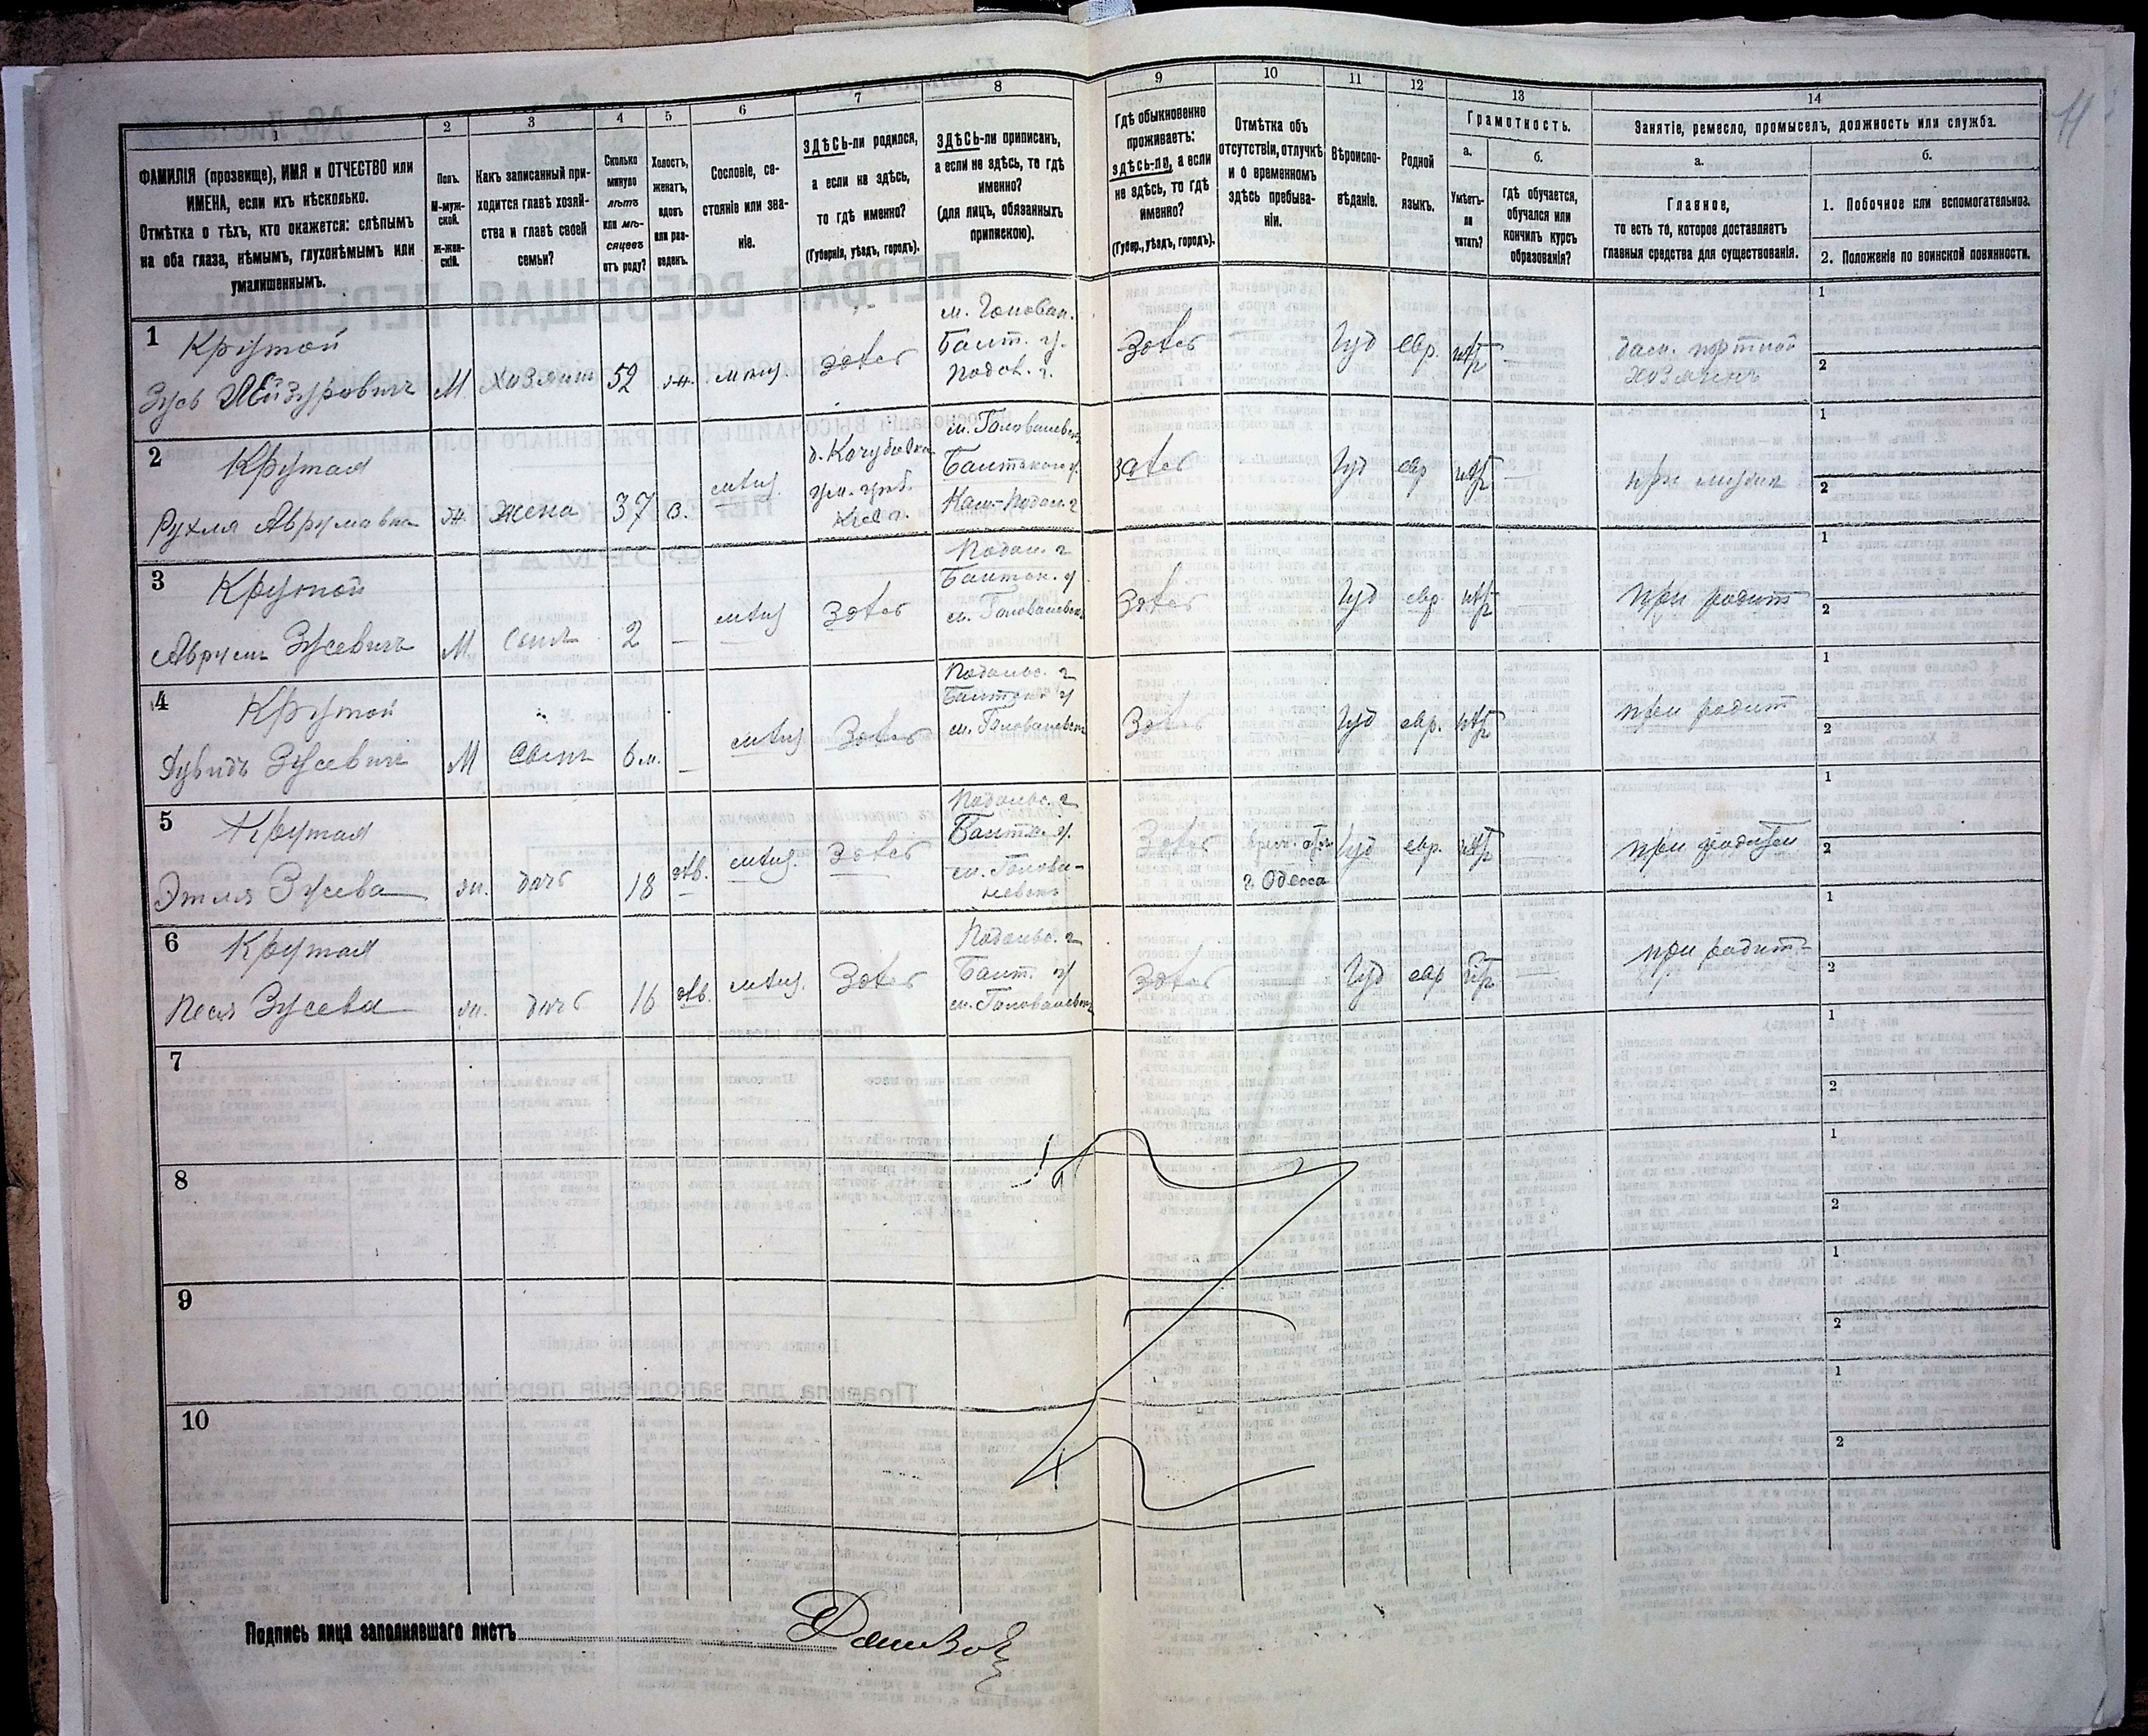 11
1
ФАМИЛІЯ (прозвище), ИМЯ и ОТЧЕСТВО или
ИМЕНА, если ихъ нѣсколько.
Отмѣтка о тѣхъ, кто окажется: слѣпымъ
на оба глаза, нѣмымъ, глухонѣмымъ или
умалишеннымъ.
2
Полъ.
М-муж-
ской.
ж-жен-
скій.
3
Какъ записанный при-
ходится главѣ хозяй-
ства и главѣ своей
семьи?
4
Сколько
минуло
лѣтъ
или мѣ-
сяцевъ
отъ роду?
5
Холостъ,
женатъ,
вдовъ
или раз-
веденъ.
6
Сословіе, со-
стояніе или зва-
ніе.
7
ЗДѢСЬ-ли родился,
а если не здѣсь,
то гдѣ именно?
(Губернія, уѣздъ, городъ).
8
ЗДѢСЬ-ли приписанъ,
а если не здѣсь, то гдѣ
именно?
(для лицъ, обязанныхъ
припискою).
9
Гдѣ обыкновенно
проживаетъ:
здѣсь-ли, а если
не здѣсь, то гдѣ
именно?
(Губер., уѣздъ, городъ).
10
Отмѣтка объ
отсутствіи, отлучкѣ
и о временномъ
здѣсь пребыва-
ніи.
11
Вѣроиспо-
вѣданіе.
12
Родной
языкъ.
13
Грамотность.
а.
Умѣетъ-
ли
читать?
б.
Гдѣ обучается,
обучался или
кончилъ курсъ
образованія?
14
Занятіе, ремесло, промыселъ, должность или служба.
а.
Главное,
то есть то, которое доставляетъ
главныя средства для существованія.
б.
1. Побочное или вспомогательное.
2. Положеніе по воинской повинности.
1
Крутой
Зусь
М
хозяинъ
52
ж.
мѣщ.
здѣсь
м. Голован.
Балт. у.
Подол. г.
Здѣсь
Іуд
евр.
портной
хозяинъ
1
2
2
Крутая
Рухля Аврумовна
ж
жена
37
з.
мѣщ.
м. Голованевскъ
Балтскаго у.
Кам-Подол. г
здѣсь
Іуд
евр
при мужѣ
1
2
3
Крутой
Аврумъ Зусевичъ
М
Сынъ
2
—
мѣщ
Здѣсь
Подол. г
Балтск. у
м. Голованевскъ
Здѣсь
Іуд
евр.
при родит
1
2
4
Крутой
Дувидъ Зусевичъ
М
Сынъ
6 м.
—
мѣщ
Здѣсь
Подольс. г
Балтск. у
м. Голованевскъ
Здѣсь
Іуд
евр.
при родит
1
2
5
Крутая
Этля Зусева
ж.
дочь
18
дѣв.
мѣщ.
Здѣсь
Подольс. г
Балтск. у.
м. Голова-
невскъ
Здѣсь
г. Одесса
Іуд
евр.
1
2
6
Крутая
Песя Зусева
ж.
дочь
16
дѣв.
мѣщ.
Здѣсь
Подольс. г
Балт. у
м. Голованевскъ
Здѣсь
Іуд
евр
при родит
1
2
7
1
2
8
1
2
9
1
2
10
1
2
Подпись лица заполнявшаго листъ